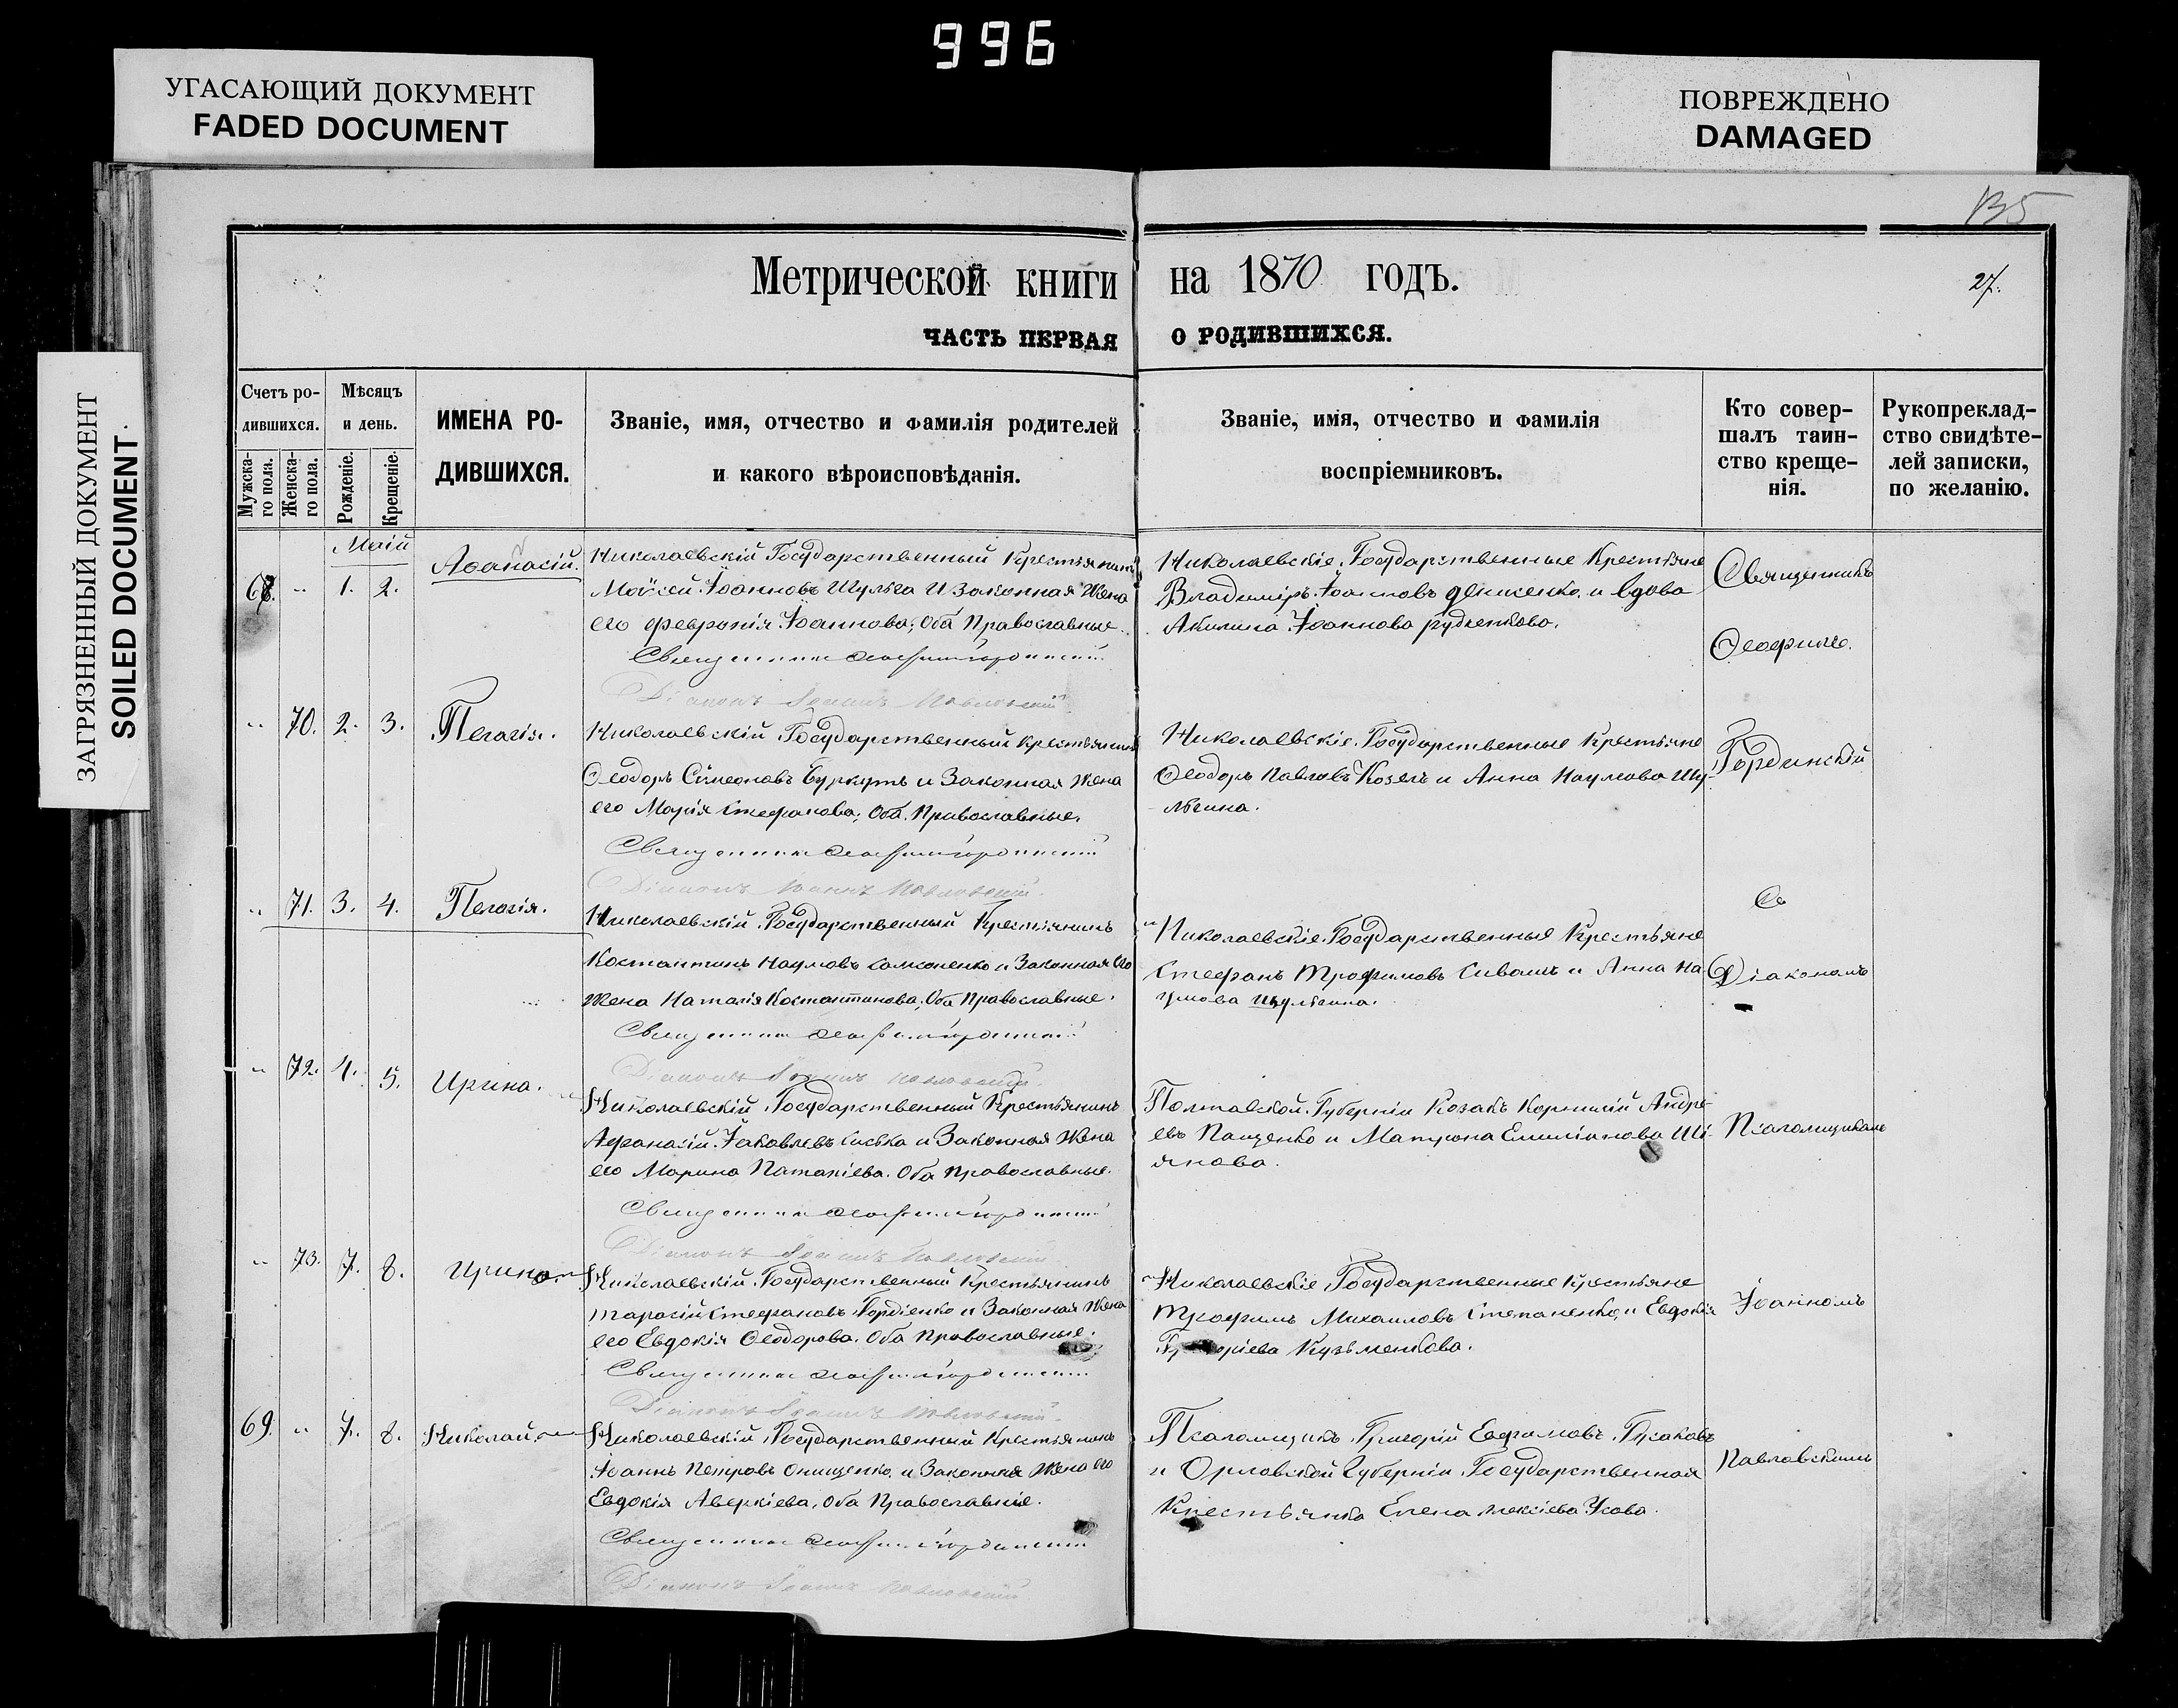 996
УГАСАЮЩИЙ ДОКУМЕНТ
FADED DOCUMENT
ПОВРЕЖДЕНО
DAMAGED
ЗАГРЯЗНЕННЫЙ ДОКУМЕНТ
SOILED DOCUMENT
135
27.
Метрической книги на 1870 годъ.
ЧАСТЬ ПЕРВАЯ О РОДИВШИХСЯ.
Счетъ ро-
дившихся.
Мужска-
го пола.
Женска-
го пола.
Мѣсяцъ
и день.
Рожденіе.
Крещеніе.
ИМЕНА РО-
ДИВШИХСЯ.
Званіе, имя, отчество и фамилія родителей
и какого вѣроисповѣданія.
Званіе, имя, отчество и фамилія
воспріемниковъ.
Кто совер-
шалъ таин-
ство креще-
нія.
Рукоприклад-
ство свидѣте-
лей записки,
по желанію.
Маій
68. " 1. 2. Аѳанасій.
Николаевскій Государственный Крестьянинъ
Моѵсей Іоанновъ Шульга и Законная Жена
его Февронія Іоаннова, Оба Православные.
Священникъ Ѳеофилъ Гординскій
Діаконъ Іоаннъ Павловскій
Николаевскіе Государственные Крестьяне
Владиміръ Іоанновъ Денисенко и вдова
Акилина Іоаннова Рудченкова.
Священникъ
Ѳеофилъ
" 70. 2. 3. Пелагія.
Николаевскій Государственный Крестьянинъ
Ѳеодоръ Сѵмеоновъ Буркутъ и Законная Жена
его Марія Стефанова, Оба Православные.
Священникъ Ѳеофилъ Гординскій
Діаконъ Іоаннъ Павловскій.
Николаевскіе Государственные Крестьяне
Ѳеодоръ Павловъ Козелъ и Анна Наумова Шу-
льгина.
Гординскій
" 71. 3. 4. Пелагія.
Николаевскій Государственный Крестьянинъ
Костантинъ Наумовъ Самсоненко и Законная его
Жена Наталія Костантинова, Оба Православные.
Священникъ Ѳеофилъ Гординскій
Діаконъ Іоаннъ Павловскій.
Николаевскіе Государственные Крестьяне
Стефанъ Трофимовъ Сивашъ и Анна На-
умова Шульгина.
Съ
Діакономъ
" 72. 4. 5. Ирина.
Николаевскій Государственный Крестьянинъ
Афанасій Іаковлевъ Сиська и Законная Жена
его Марина Патапіева. Оба Православные.
Священникъ Ѳеофилъ Гординскій
Діаконъ Іоаннъ Павловскій
Полтавской Губерніи Козакъ Корнилій Андре-
евъ Пащенко и Матрона Емиліанова Ші-
янова.
Псаломщикомъ
" 73. 7. 8. Ирина
Николаевскій Государственный Крестьянинъ
Тарасій Стефановъ Гордіенко и Законная Жена
его Евдокія Ѳеодорова. Оба Православные.
Священникъ Ѳеофилъ Гординскій
Діаконъ Іоаннъ Павловскій.
Николаевскіе Государственные Крестьяне
Трофимъ Михаиловъ Степаненко, и Евдокія
Кузьменкова.
Іоанномъ
69. " 7. 8. Николай
Николаевскій Государственный Крестьянинъ
Іоаннъ Петровъ Онищенко и Законная Жена его
Евдокія Аверкіева, Оба Православніе.
Священникъ Ѳеофилъ Гординскій
Діаконъ Іоаннъ Павловскій
Псаломщикъ Григорій Евфимовъ Гусаковъ
и Орловской Губерніи Государственная
Крестьянка Елена Алексіева Усова.
Павловскимъ